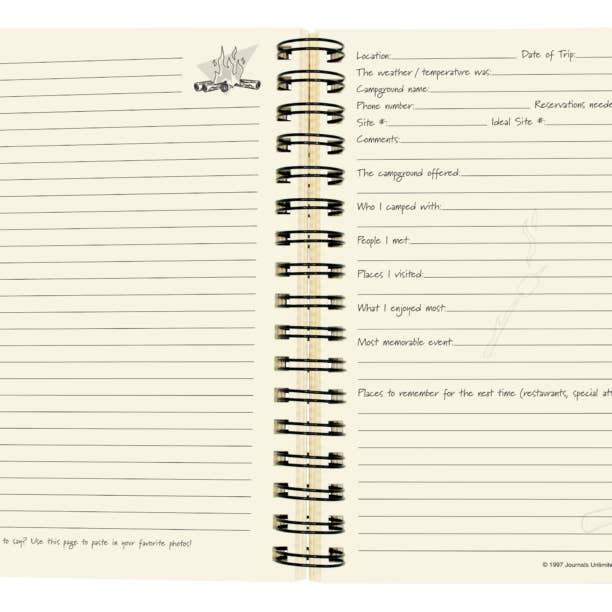 to say? Use this page to paste in your favorite photos!
Location: Date of Trip:
The weather / temperature was:
Campground name:
Phone number: Reservations neede
Site #: Ideal Site #:
Comments:
The campground offered:
Who I camped with:
People I met:
Places I visited:
What I enjoyed most:
Most memorable event:
Places to remember for the next time (restaurants, special att
© 1997 Journals Unlimite